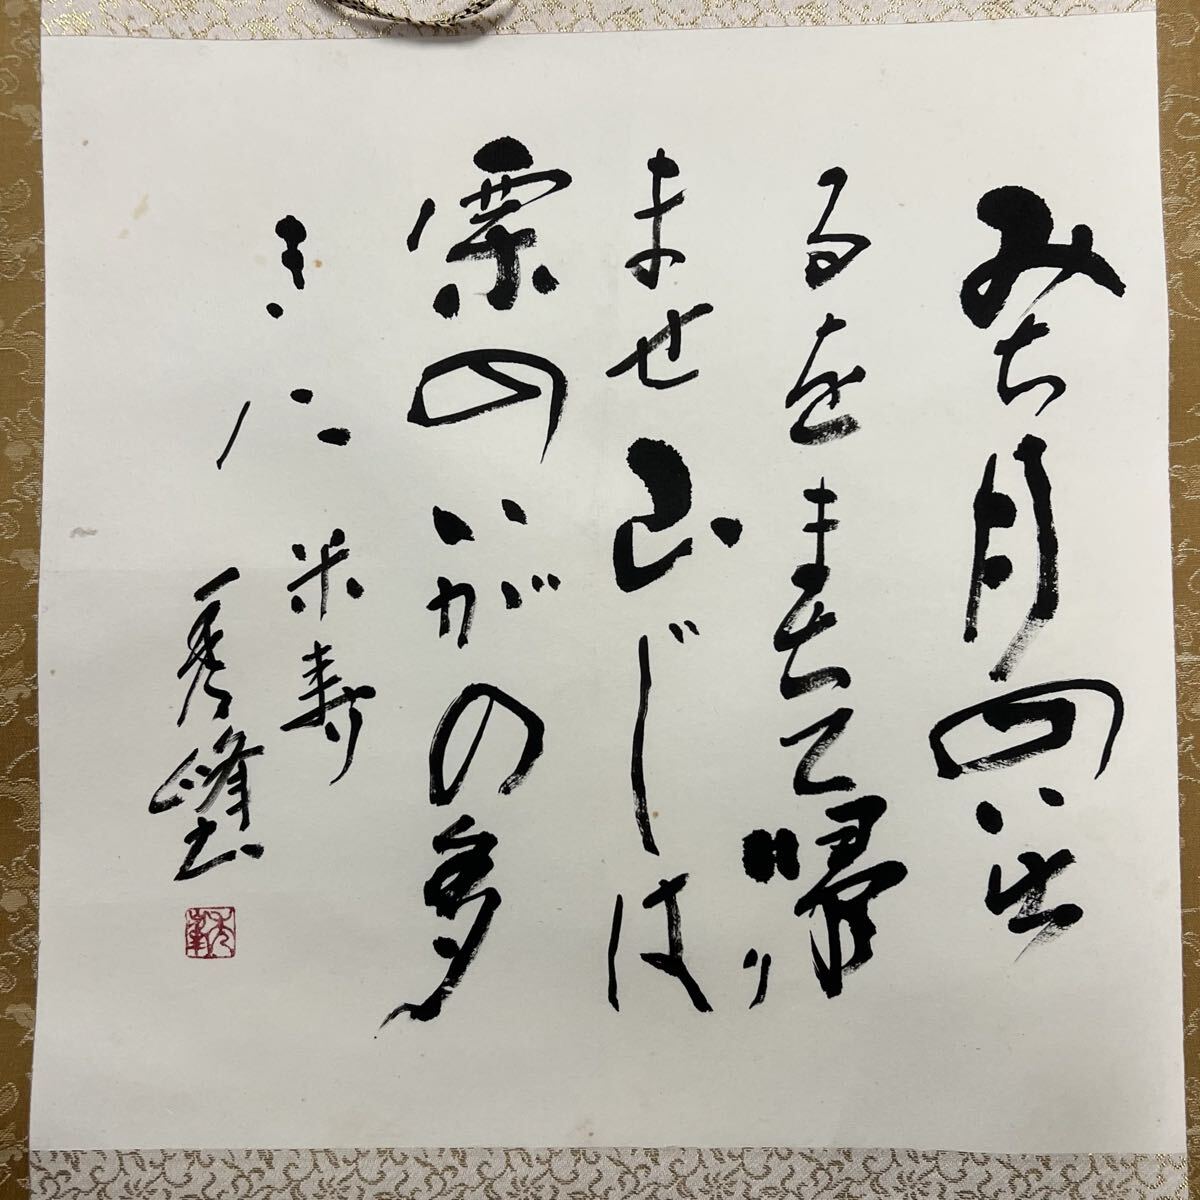 みち月の い出
るをまちて帰り
ませ山じは
栗のいがの多
きに 米寿
秀峰書